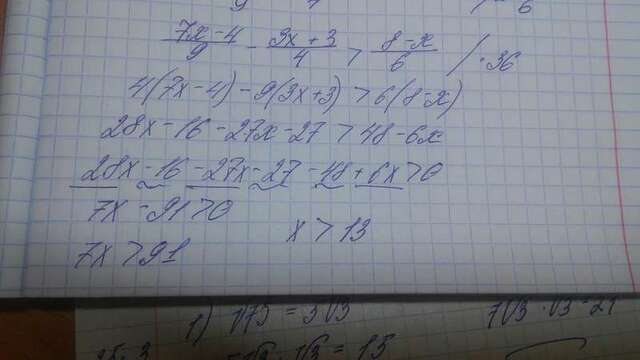 (7x-4)/9 - (3x+3)/4 > (8-x)/6 / ·36
4(7x-4)-9(3x+3)>6(8-x)
28x-16-27x-27>48-6x
28x-16-27x-27-48+6x>0
7x-91>0
7x>91
x>13
1) √75 = 5√3
7√3·√3=21
·√3=15